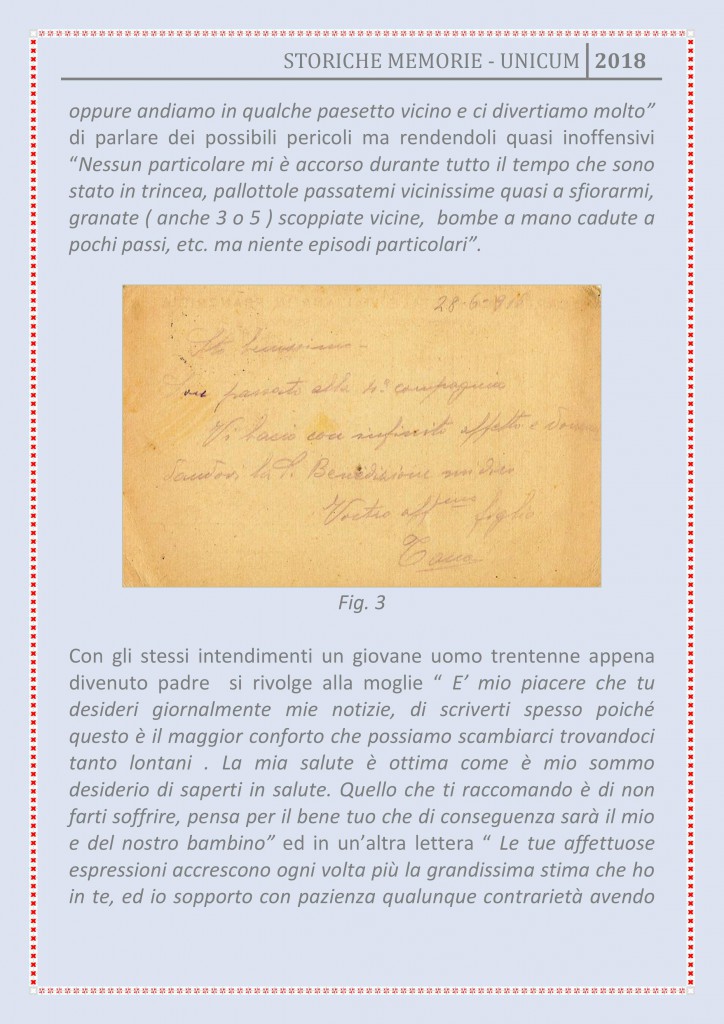 STORICHE MEMORIE - UNICUM 2018
oppure andiamo in qualche paesetto vicino e ci divertiamo molto”
di parlare dei possibili pericoli ma rendendoli quasi inoffensivi
“Nessun particolare mi è accorso durante tutto il tempo che sono
stato in trincea, pallottole passatemi vicinissime quasi a sfiorarmi,
granate ( anche 3 o 5 ) scoppiate vicine, bombe a mano cadute a
pochi passi, etc. ma niente episodi particolari”.
28-6-916
Sto benissimo -
passato alla compagnia
Vi bacio con infinito affetto e
la S. Benedizione
Vostro aff figlio
Fig. 3
Con gli stessi intendimenti un giovane uomo trentenne appena
divenuto padre si rivolge alla moglie “ E’ mio piacere che tu
desideri giornalmente mie notizie, di scriverti spesso poiché
questo è il maggior conforto che possiamo scambiarci trovandoci
tanto lontani . La mia salute è ottima come è mio sommo
desiderio di saperti in salute. Quello che ti raccomando è di non
farti soffrire, pensa per il bene tuo che di conseguenza sarà il mio
e del nostro bambino” ed in un’altra lettera “ Le tue affettuose
espressioni accrescono ogni volta più la grandissima stima che ho
in te, ed io sopporto con pazienza qualunque contrarietà avendo